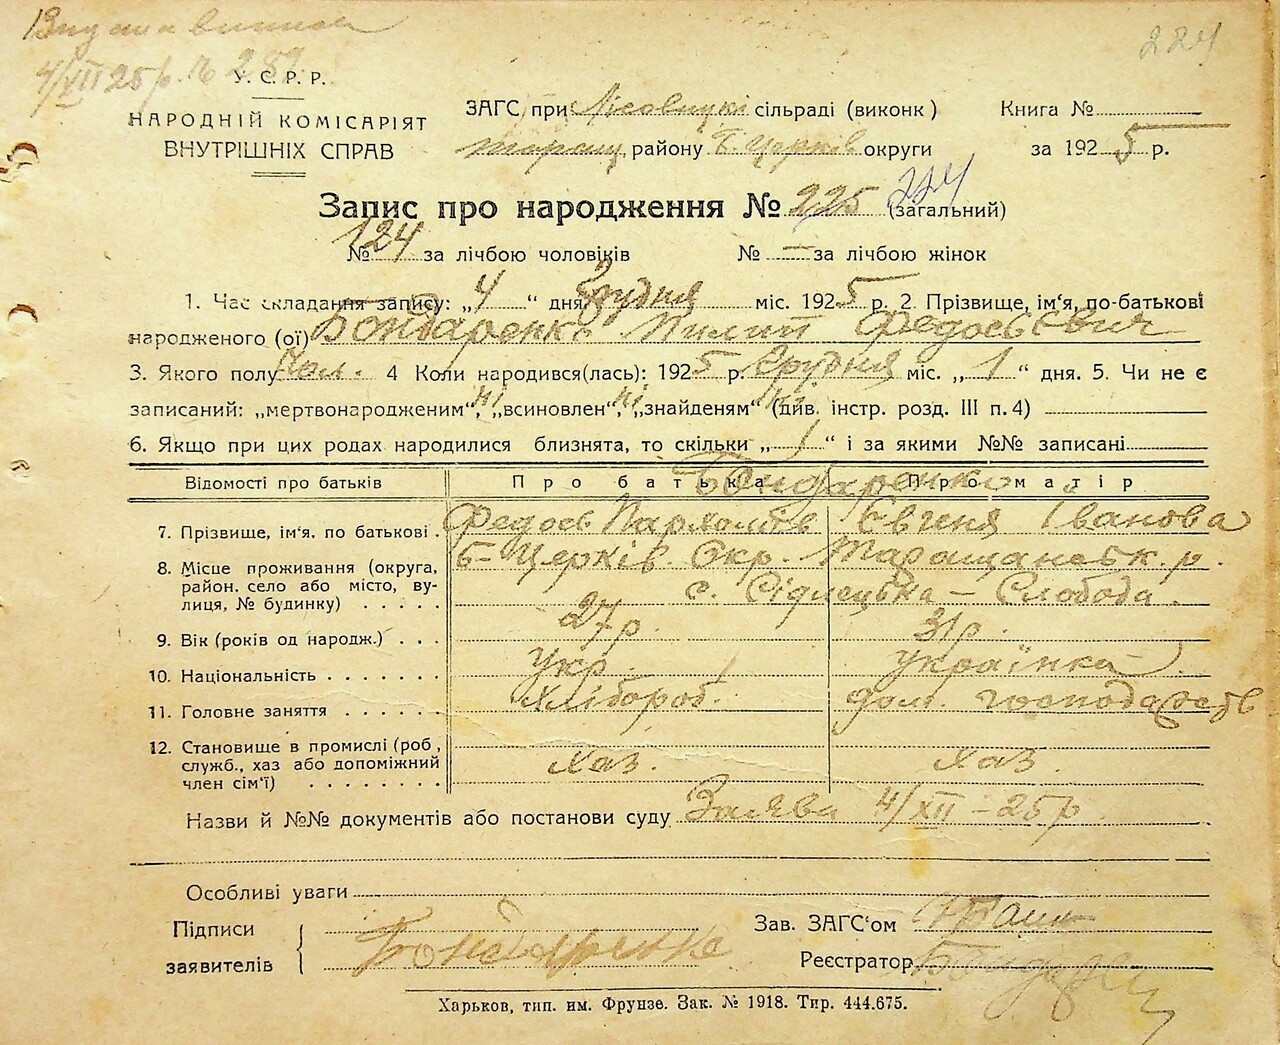 224
4/XII 25р. № 289
У. С. Р. Р.
НАРОДНІЙ КОМІСАРІЯТ
ВНУТРІШНІХ СПРАВ
ЗАГС при Лісовицкі сільраді (виконк)
Таращ району Б. Церків округи
Книга №
за 1925 р.
Запис про народження № 225 224 (загальний)
№ 124 за лічбою чоловіків № — за лічбою жінок
1. Час складання запису: „4“ дня Грудня міс. 1925 р. 2 Прізвище, ім‘я, по-батькові
народженого (ої) Бондаренко Пилип Федосьєвич
3. Якого полу Чол. 4 Коли народився(лась): 1925 р. Грудня міс. „1“ дня. 5. Чи не є
записаний: „мертвонародженим“, ні „всиновлен“, ні „знайденям“ ні (див. інстр. розд. III п. 4)
6. Якщо при цих родах народилися близнята, то скільки „1“ і за якими №№ записані
Відомості про батьків Про батька Про матір
Бондаренки
7. Прізвище, ім‘я. по батькові. Федось Євгенія Іванова
8. Місце проживання (округа, район. село або місто, вулиця, № будинку) Б-Церків. Окр. Таращанськ. р.
с. Сідлецька – Слобода.
9. Вік (років од народж.) 27 р. 31 р.
10. Національність Укр. українка
11. Головне заняття Хлібороб. дом. господарств
12. Становище в промислі (роб, служб., хаз або допоміжний член сім‘ї) хаз. хаз.
Назви й №№ документів або постанови суду Заява 4/XII – 25 р.
Особливі уваги
Підписи
заявителів Бондаренко
Зав. ЗАГС‘ом
Реєстратор
Харьков, тип. им. Фрунзе. Зак. № 1918. Тир. 444.675.